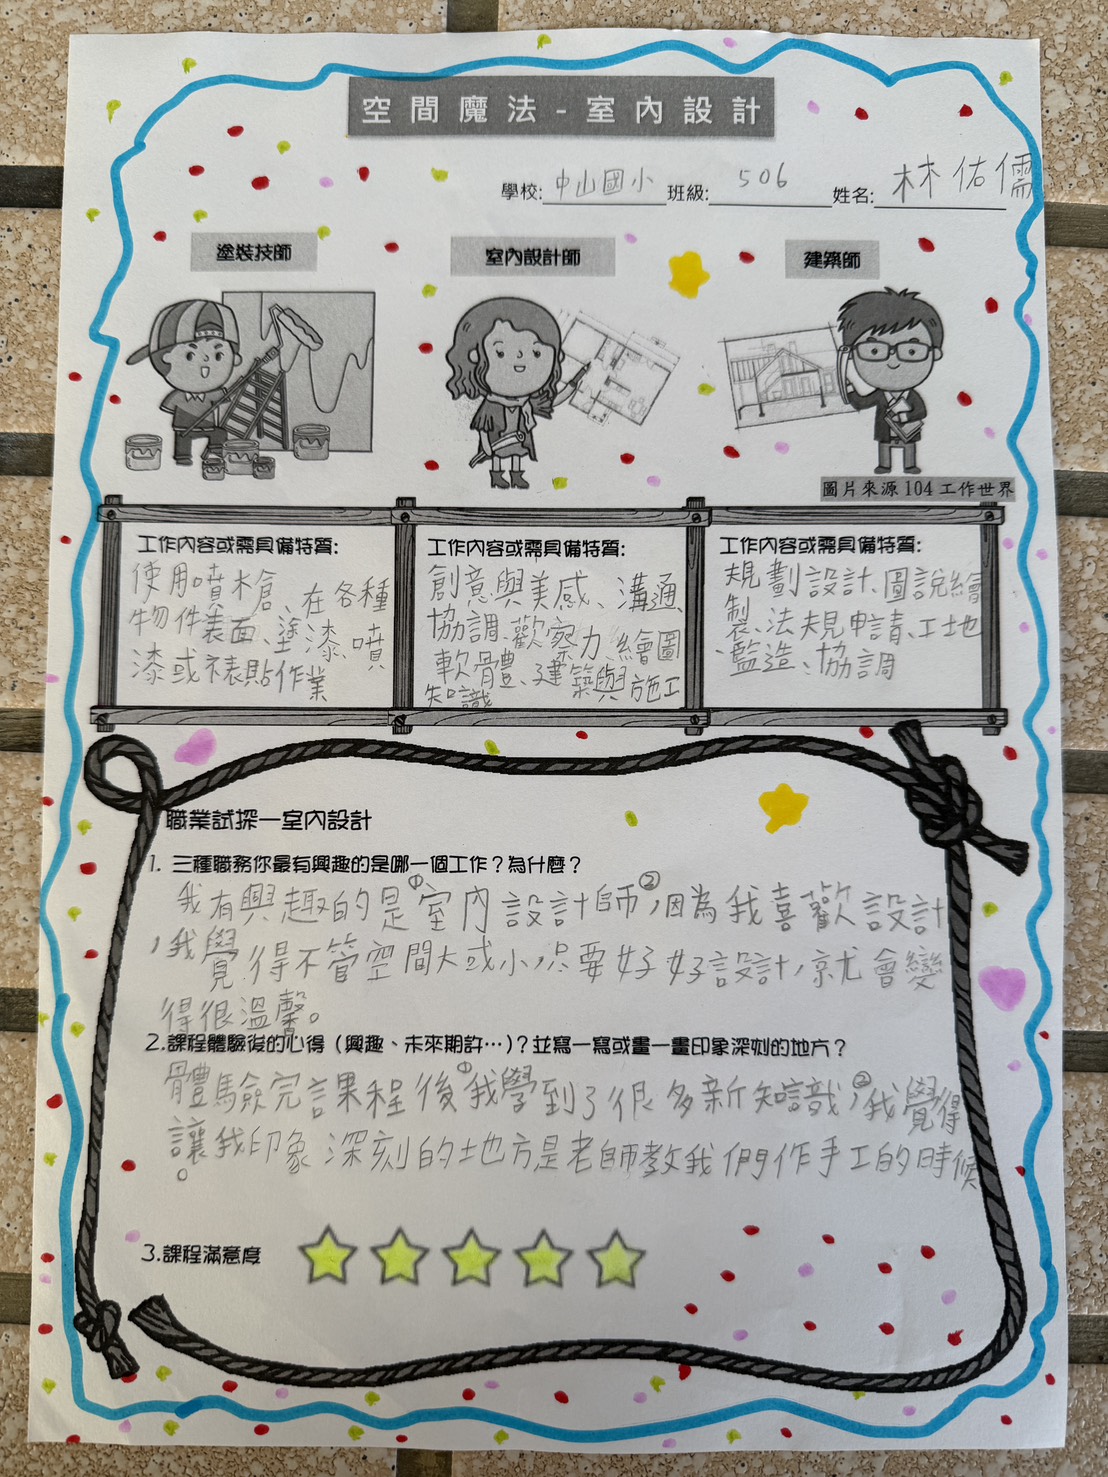 空間魔法-室內設計
學校:中山國小 班級:506 姓名:林佑儒
塗裝技師
室內設計師
建築師
圖片來源 104 工作世界
工作內容或需具備特質:
使用噴槍、在各種
物件表面、塗漆、噴
漆或裱貼作業
工作內容或需具備特質:
創意與美感、溝通、
協調、觀察力、繪圖
軟體、建築與施工
知識
工作內容或需具備特質:
規劃設計、圖說繪
製、法規申請、工地
監造、協調
職業試探—室內設計
1. 三種職務你最有興趣的是哪一個工作?為什麼?
我有興趣的是①室內設計師,②因為我喜歡設計
,我覺得不管空間大或小,只要好好設計,就會變
得很溫馨。
2.課程體驗後的心得 (興趣、未來期許…)?並寫一寫或畫一畫印象深刻的地方?
體驗完課程後①我學到了很多新知識,②我覺得
讓我印象深刻的地方是老師教我們作手工的時候
。
3.課程滿意度